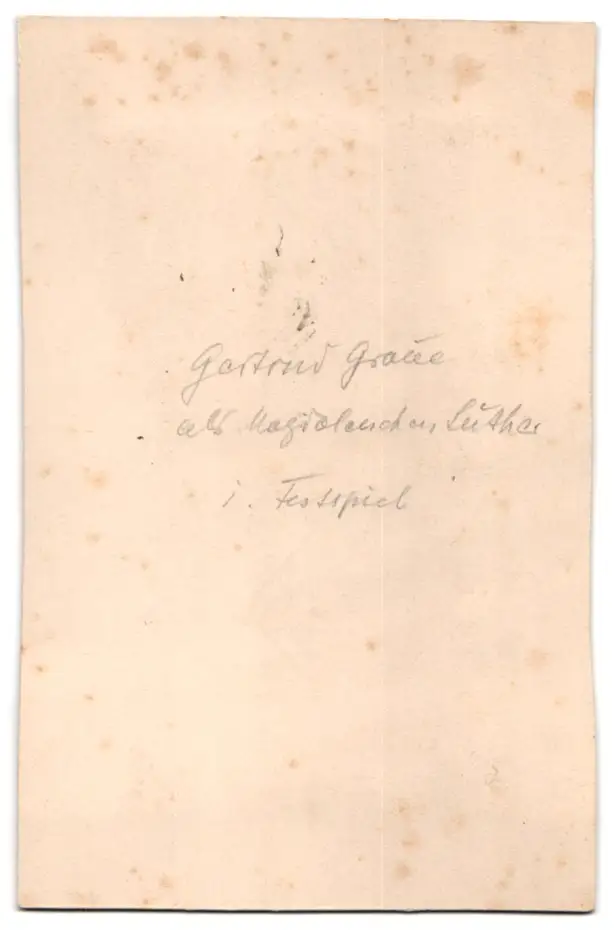 Gertrud Graue
als Magdalenchen Luther
i. Festspiel